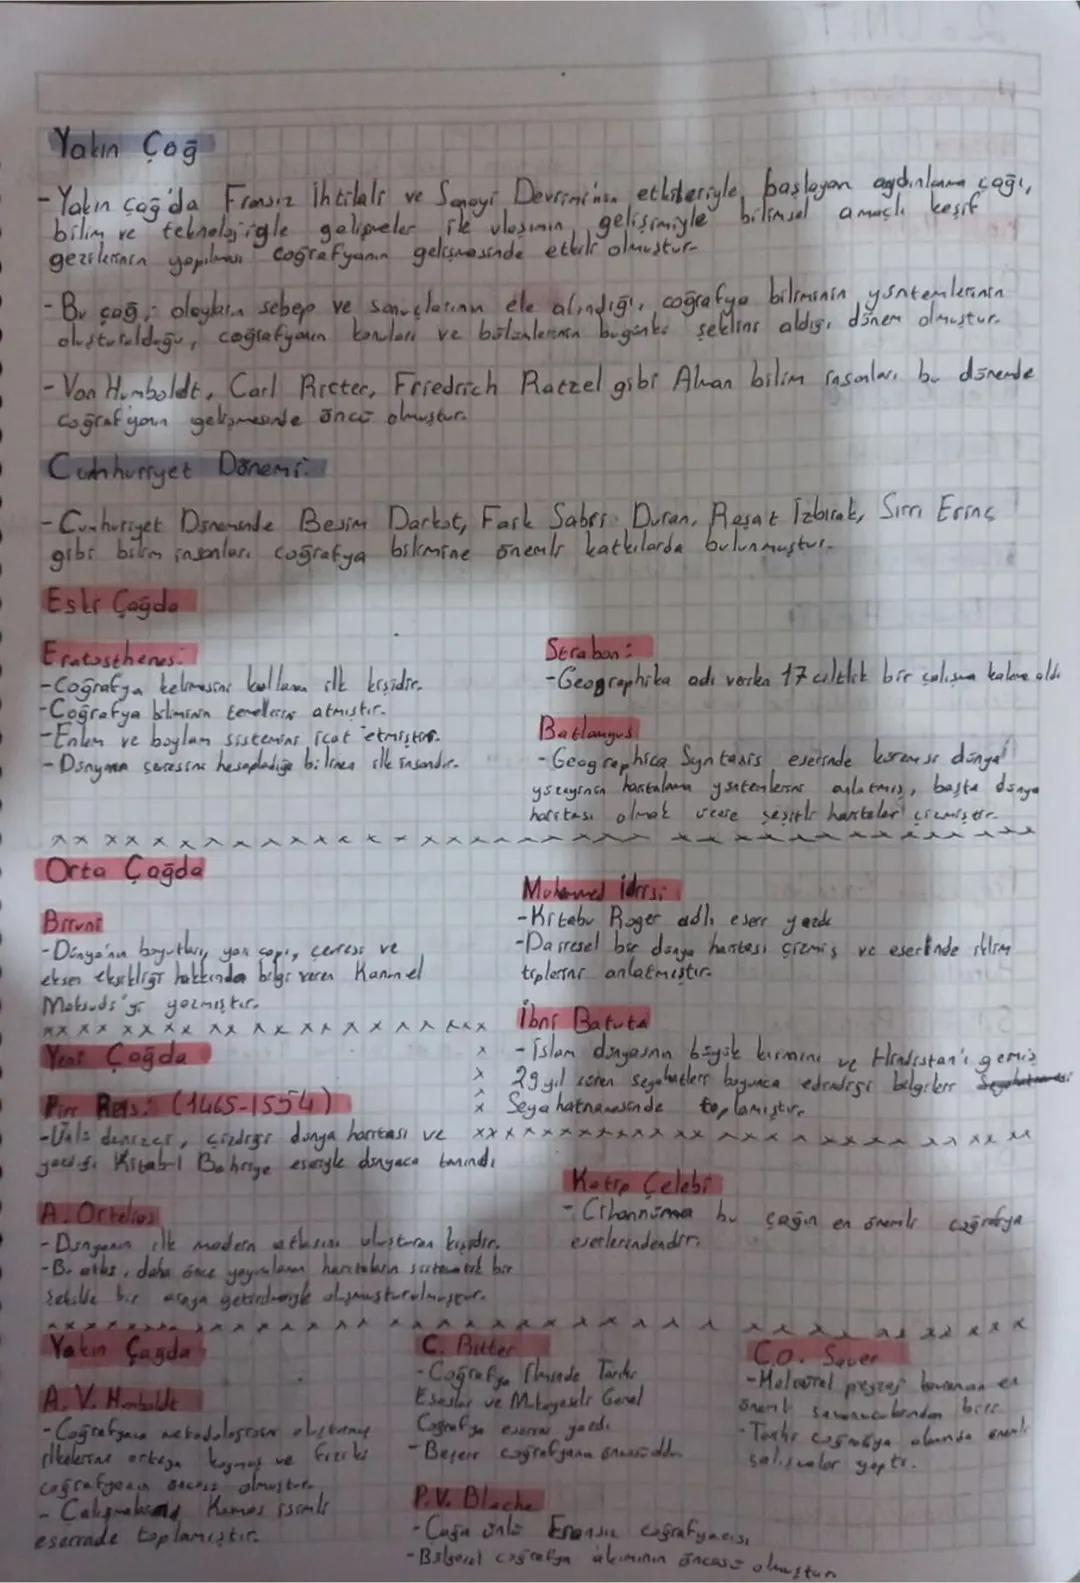 Yakın Çağ
- Yakın çağ'da Fransız İhtilali ve Sanayi Devrimi'nin etkileriyle, başlayan aydınlanma çağı,
bilim ve teknolojiyle gelişmeler ile ulaşımın gelişimiyle bilimsel amaçlı keşif
gezilerinin yapılması coğrafyanın gelişmesinde etkili olmuştur.
- Bu çağ; olayların sebep ve sonuçlarının ele alındığı, coğrafya biliminin yöntemlerinin
oluşturulduğu, coğrafyanın konuları ve bölümlerinin bugünkü şeklini aldığı dönem olmuştur.
- Von Humboldt, Carl Ritter, Friedrich Ratzel gibi Alman bilim insanları bu dönemde
coğrafyanın gelişmesinde öncü olmuştur.
Cumhuriyet Dönemi:
- Cumhuriyet Döneminde Besim Darkot, Faik Sabri Duran, Reşat İzbırak, Sırrı Erinç
gibi bilim insanları coğrafya bilimine önemli katkılarda bulunmuştur.
Eski Çağda
Eratosthenes:
- Coğrafya kelimesini kullanan ilk kişidir.
- Coğrafya biliminin temellerini atmıştır.
- Enlem ve boylam sistemini icat etmiştir.
- Dünyanın çevresini hesapladığı bilinen ilk insandır.
Strabon:
- Geographika adı verilen 17 ciltlik bir çalışma kaleme aldı
Batlamyus
- Geographica Syntasis eserinde küremsi dünya
yüzeyinin haritalama yöntemlerini anlatmış, başta dünya
haritası olmak üzere çeşitli haritalar çizmiştir.
Orta Çağda
Biruni
- Dünya'nın boyutları, yarı çapı, çevresi ve
eksen eksikliği hakkında bilgi veren Kanun el
Maksudi'yi yazmıştır.
Muhammed İdrisi
- Kitabu Roger adlı eseri yazdı
- Dairesel bir dünya haritası çizmiş ve eserinde iklim
tiplerini anlatmıştır.
İbni Batuta
- İslam dünyasının büyük kısmını ve Hindistan'ı gezmiş
29 yıl süren seyahatleri boyunca edindiği bilgileri
Seyahatnamesinde toplamıştır.
Yeni Çağda
Piri Reis: (1465-1554)
- Ünlü denizci, çizdiği dünya haritası ve
yazdığı Kitab-ı Bahriye eseriyle dünyaca tanındı
Katip Çelebi
- Cihannüma bu çağın en önemli coğrafya
eserlerindendir.
A. Ortelius
- Dünyanın ilk modern atlasını oluşturan kişidir.
- Bu atlas, daha önce yayınlanan haritaların sistematik bir
şekilde bir araya getirilmesiyle oluşturulmuştur.
Yakın Çağda
A. V. Humboldt
- Coğrafyanın metodolojisini oluşturmuş
ilkelerini ortaya koymuş ve fiziki
coğrafyanın öncüsü olmuştur.
- Çalışmalarını Kosmos isimli
eserinde toplamıştır.
C. Ritter
- Coğrafya İlminde Tarihi
Esaslar ve Mukayeseli Genel
Coğrafya eserini yazdı.
- Beşeri coğrafyanın öncüsüdür.
P.V. Blache
- Çağın ünlü Fransız coğrafyacısı
- Bölgesel coğrafya akımının öncüsü olmuştur
C.O. Sauer
- Kültürel peyzaj kavramının en
önemli savunucularından biri.
- Tarihi coğrafya alanında önemli
çalışmalar yaptı.